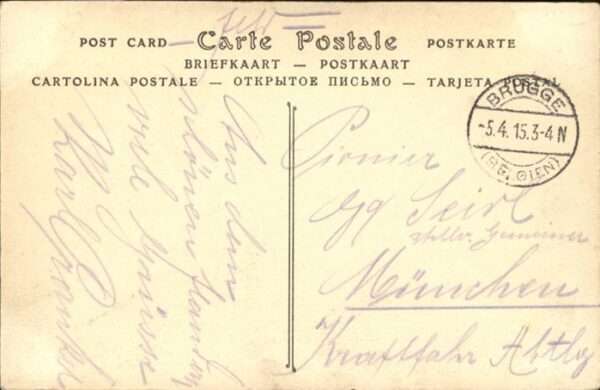 POST CARD — Carte Postale POSTKARTE
BRIEFKAART — POSTKAART
CARTOLINA POSTALE — ОТКРЫТОЕ ПИСЬМО — TARJETA POSTAL
BRÜGGE
-5.4.15.3-4N
(BELGIEN)
Aus dem
schönen
viele Grüsse
Karl
Pionier
Seirl
München
Kraftfahr Abtlg